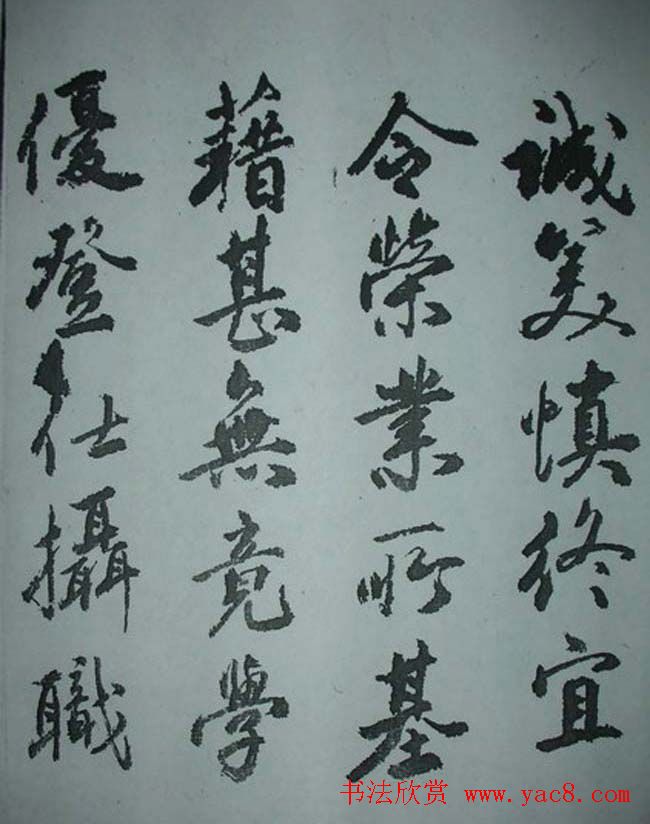 誠美慎終宜
令榮業所基
藉甚無竟學
優登仕攝職
书法欣赏 www.yac8.com